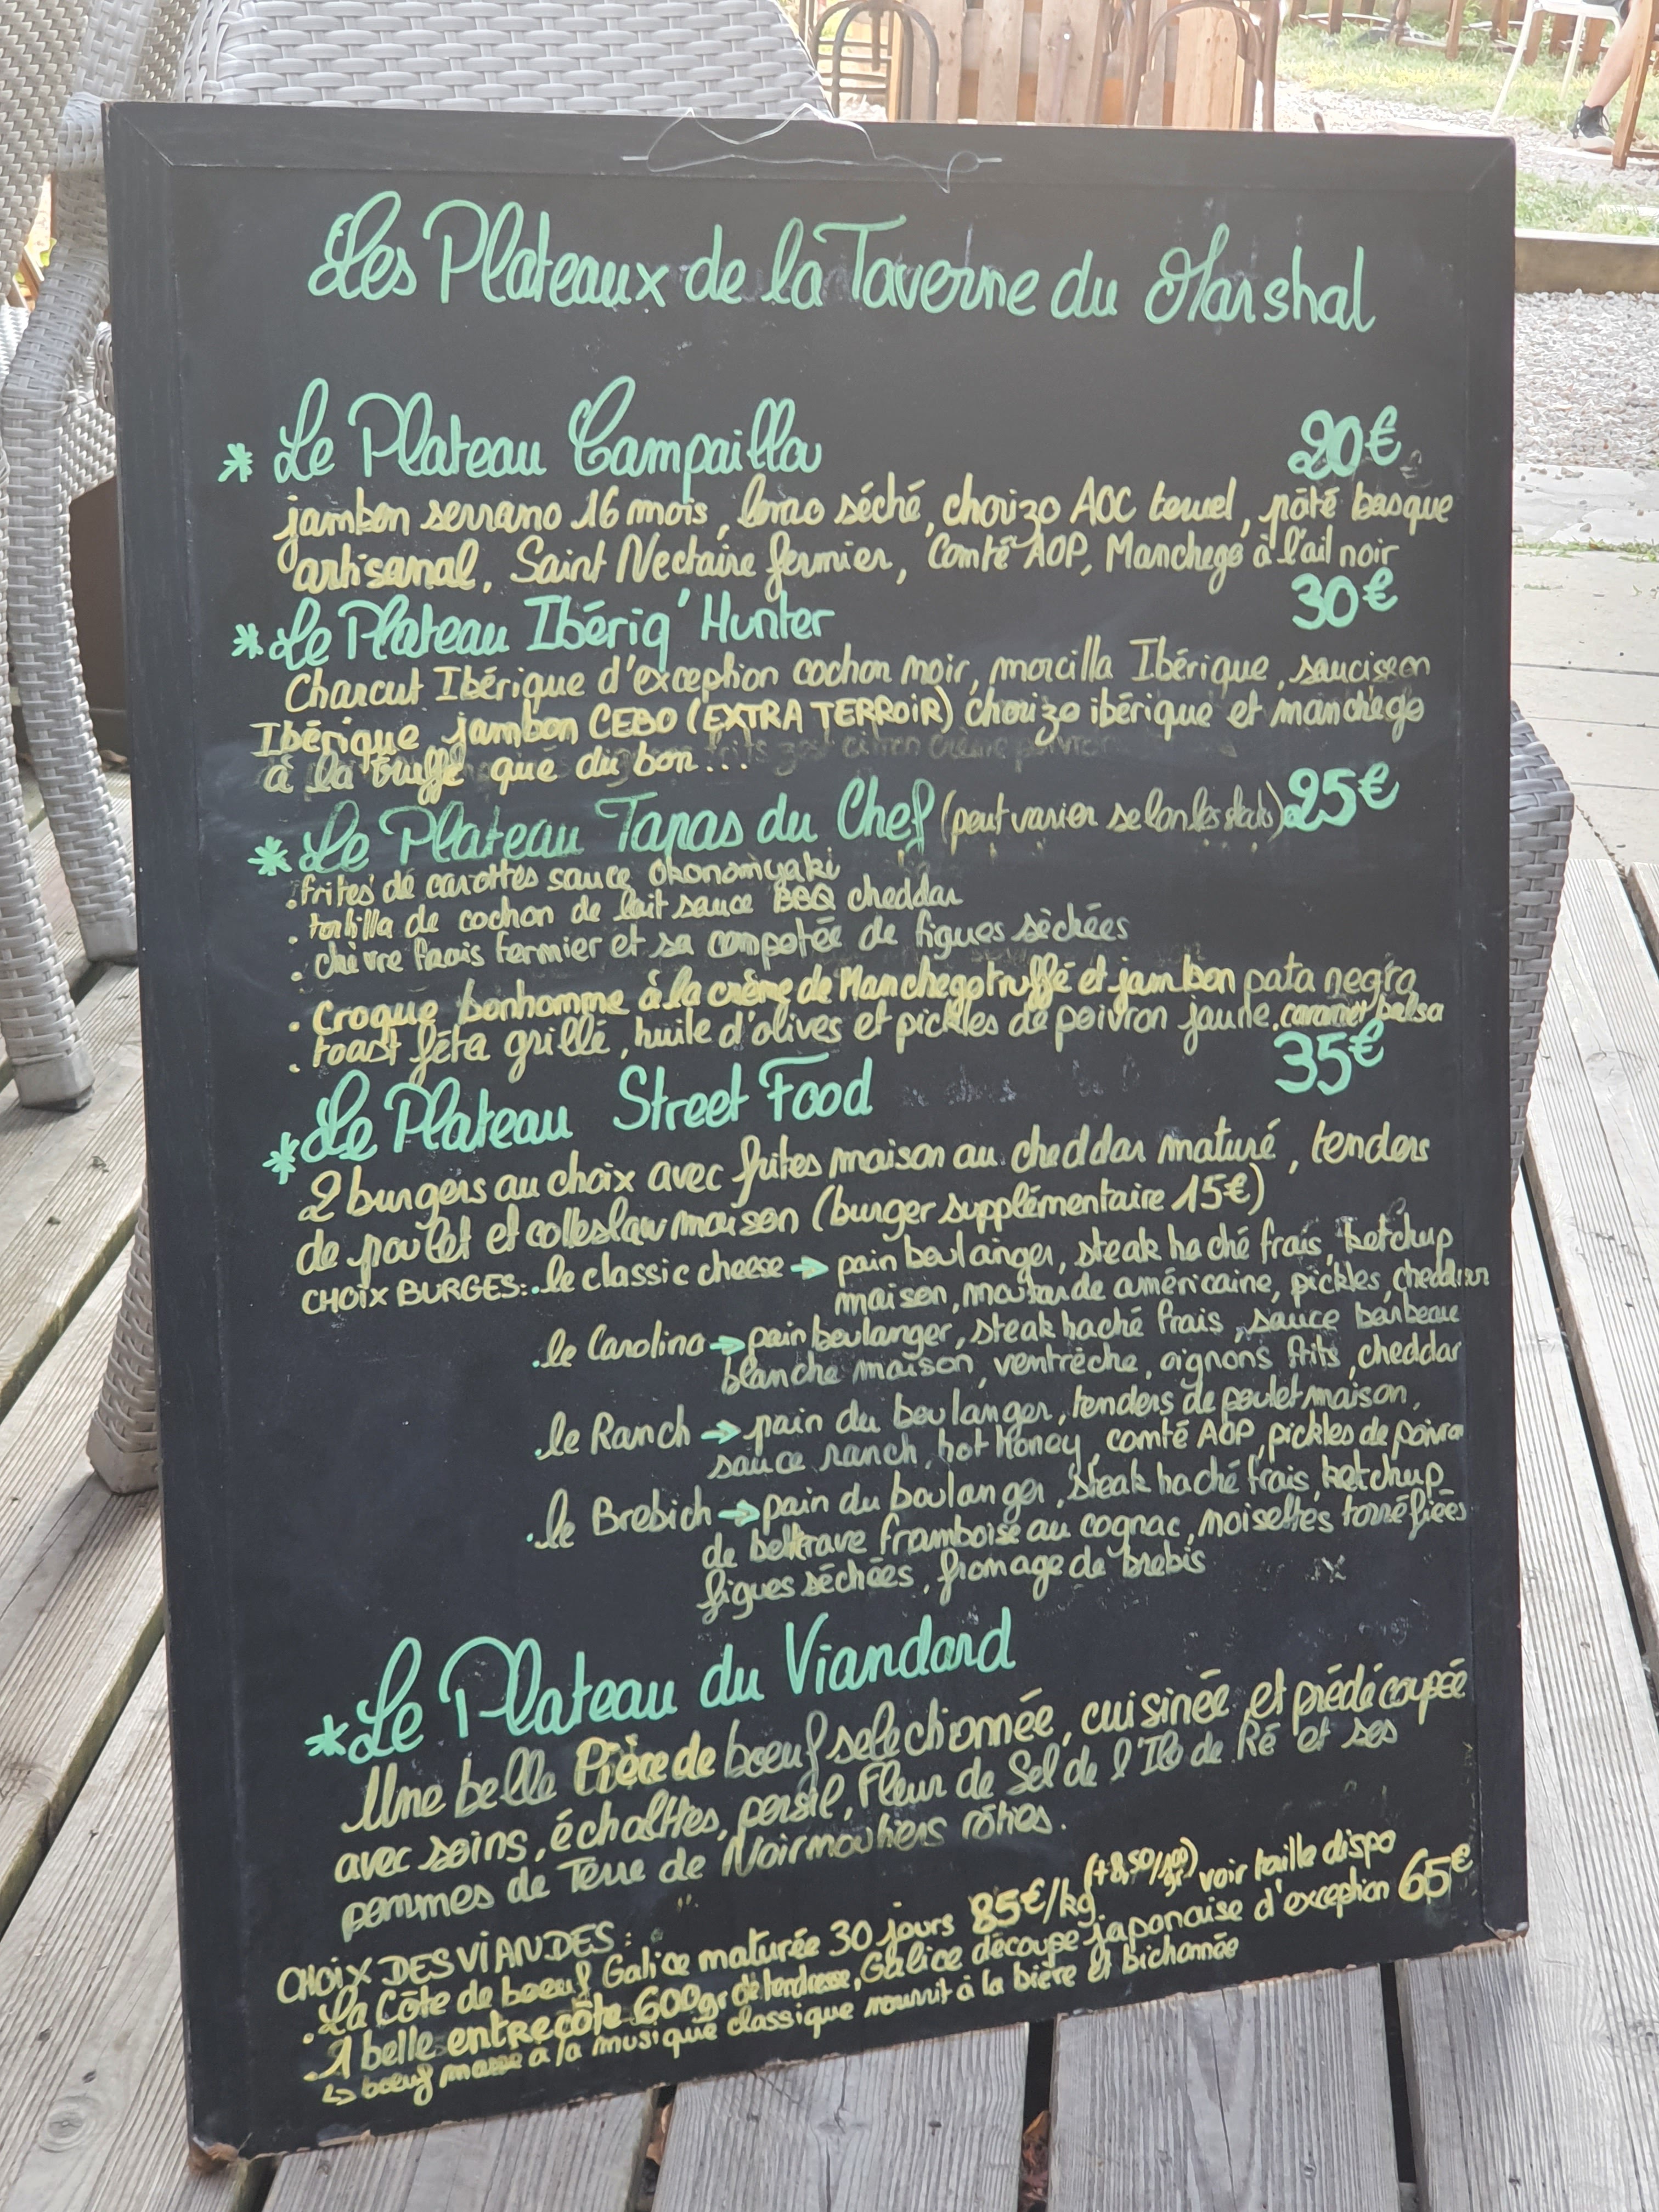 Les Plateaux de la Taverne du Marshal
* Le Plateau Campailla 20€
jambon serrano 16 mois, lomo séché, chorizo AOC teruel, pâté basque
artisanal, Saint Nectaire fermier, Comté AOP, Manchego à l'ail noir
* Le Plateau Ibériq'Hunter 30€
Charcut Ibérique d'exception cochon noir, morcilla Ibérique, saucisson
Ibérique jambon CEBO (EXTRA TERROIR) chorizo ibérique et manchego
à la truffe que du bon...
* Le Plateau Tapas du Chef (peut varier selon les stocks) 25€
. frites de carottes sauce Okonomiyaki
. tortilla de cochon de lait sauce BBQ cheddar
. chèvre frais fermier et sa compotée de figues sèchées
. Croque bonhomme à la crème de Manchego truffé et jambon pata negra
. toast féta grillé, huile d'olives et pickles de poivron jaune. caramel balsa
* Le Plateau Street Food 35€
2 burgers au choix avec frites maison au cheddar maturé, tenders
de poulet et colleslaw maison (burger supplémentaire 15€)
CHOIX BURGES: . le classic cheese → pain boulanger, steak haché frais, ketchup
maison, moutarde américaine, pickles, cheddar
. le Carolina → pain boulanger, steak haché frais, sauce barbecue
blanche maison, ventrèche, oignons frits, cheddar
. le Ranch → pain du boulanger, tenders de poulet maison,
sauce ranch, hot honey, comté AOP, pickles de poivron
. le Brebich → pain du boulanger, steak haché frais, ketchup
de betterave framboise au cognac, noisettes torréfiées
figues séchées, fromage de brebis
* Le Plateau du Viandard
Une belle Pièce de boeuf selectionnée, cuisinée et prédécoupée
avec soins, échalttes, persil, Fleur de Sel de l'Ile de Ré et ses
pommes de Terre de Noirmoutiers rôties.
CHOIX DES VIANDES :
. La Côte de boeuf Galice maturée 30 jours 85€/kg (+8,50/100gr) voir taille dispo
. 1 belle entrecôte 600gr de tendresse, Galice découpe japonaise d'exception 65€
↳ boeuf massé à la musique classique nourrit à la bière et bichonnée